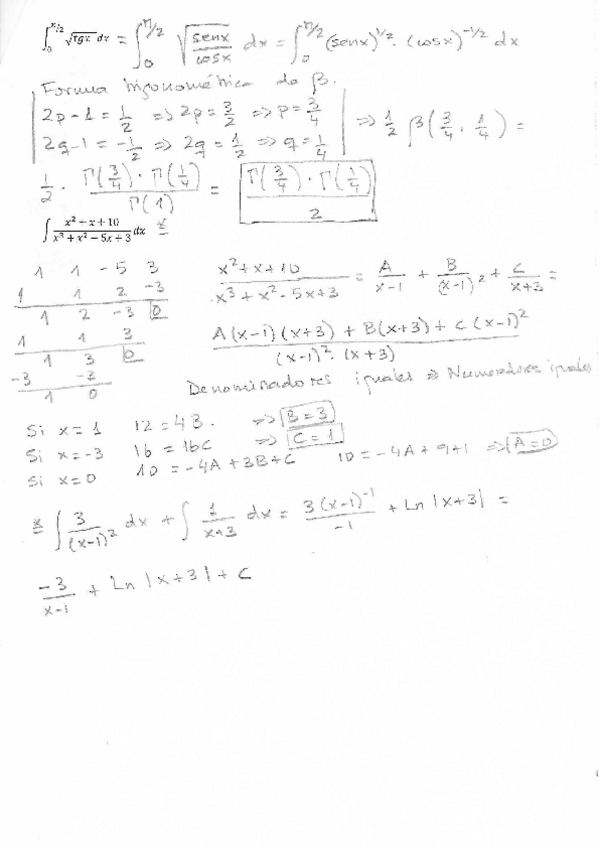 ∫₀^{π/2} √tgx dx = ∫₀^{π/2} √(senx/cosx) dx = ∫₀^{π/2} (senx)^{1/2} · (cosx)^{-1/2} dx
Forma trigonométrica de β.
2p-1 = 1/2 => 2p = 3/2 => p = 3/4
2q-1 = -1/2 => 2q = 1/2 => q = 1/4 => 1/2 β(3/4, 1/4) =
1/2 · Γ(3/4) · Γ(1/4) / Γ(1) = Γ(3/4) · Γ(1/4) / 2
∫ (x²+x+10)/(x³+x²−5x+3) dx *
1 1 -5 3
1 1 2 -3
1 2 -3 0
1 1 3
1 3 0
-3 -3
1 0
(x²+x+10)/(x³+x²-5x+3) = A/(x-1) + B/(x-1)² + C/(x+3) =
(A(x-1)(x+3) + B(x+3) + C(x-1)²)/((x-1)² · (x+3))
Denominadores iguales => Numeradores iguales
Si x=1 12=4B. => B=3
Si x=-3 16=16C => C=1
Si x=0 10=-4A+3B+C 10=-4A+9+1 => A=0
* ∫ 3/(x-1)² dx + ∫ 1/(x+3) dx = 3(x-1)^{-1}/-1 + Ln|x+3| =
-3/(x-1) + Ln|x+3| + C